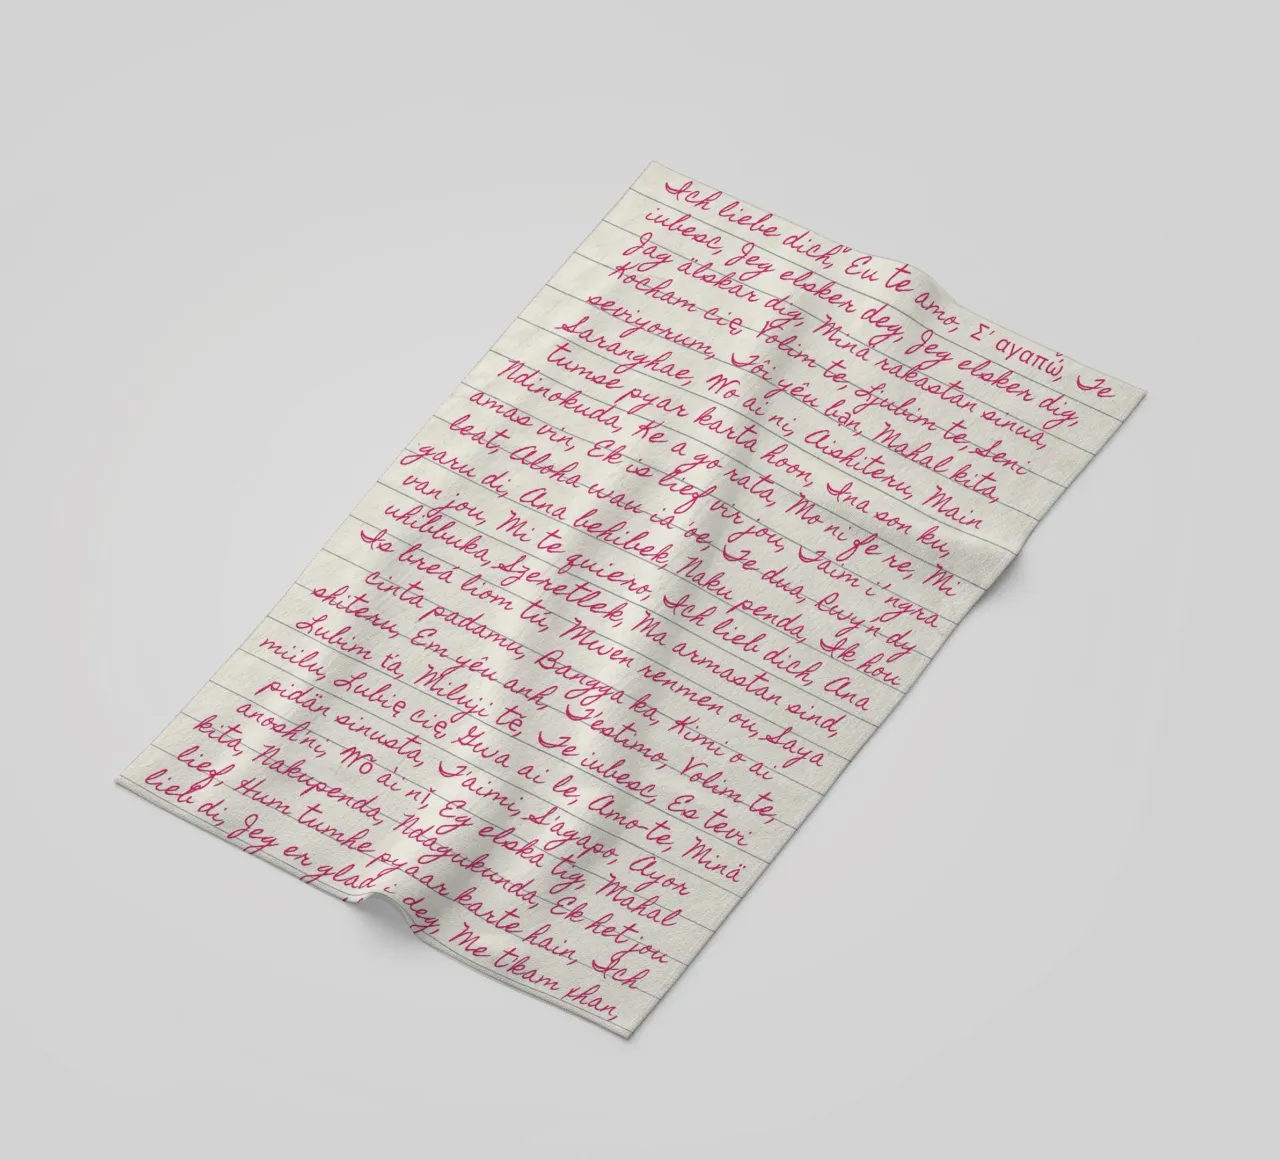 Ich liebe dich, Eu te amo, Σ'αγαπώ, Te
iubesc, Jeg elsker deg, Jeg elsker dig,
Jag älskar dig, Minä rakastan sinua,
Kocham cię, Volim te, Ljubim te, Seni
seviyorum, Tôi yêu bạn, Mahal kita,
Saranghae, Wo ai ni, Aishiteru, Main
tumse pyar karta hoon, Ina son ku,
Ndinokuda, Ke a go rata, Mo ni fe re, Mi
amas vin, Ek is lief vir jou, Taim i' ngra
leat, Aloha wau ia 'oe, Te dua, Rwyn dy
garu di, Ana behibek, Naku penda, Ik hou
van jou, Mi te quiero, Ich lieb dich, Ana
uhibbuka, Szeretlek, Ma armastan sind,
Is breá liom tú, Mwen renmen ou, Saya
cinta padamu, Bangga ka, Kimi o ai
shiteru, Em yêu anh, T'estimo, Volim te,
Lubim ťa, Miluji tě, Te iubesc, Es tevi
miilu, Lubię cię, Gwa ai le, Amo-te, Minä
pidän sinusta, T'aimi, S'agapo, Ayor
anosh'ni, Wǒ ài nǐ, Eg elska tig, Mahal
kita, Nakupenda, Ndagukunda, Ek het jou
lief, Hum tumhe pyaar karte hain, Ich
lieb di, Jeg er glad i deg, Me t'kam xhan,